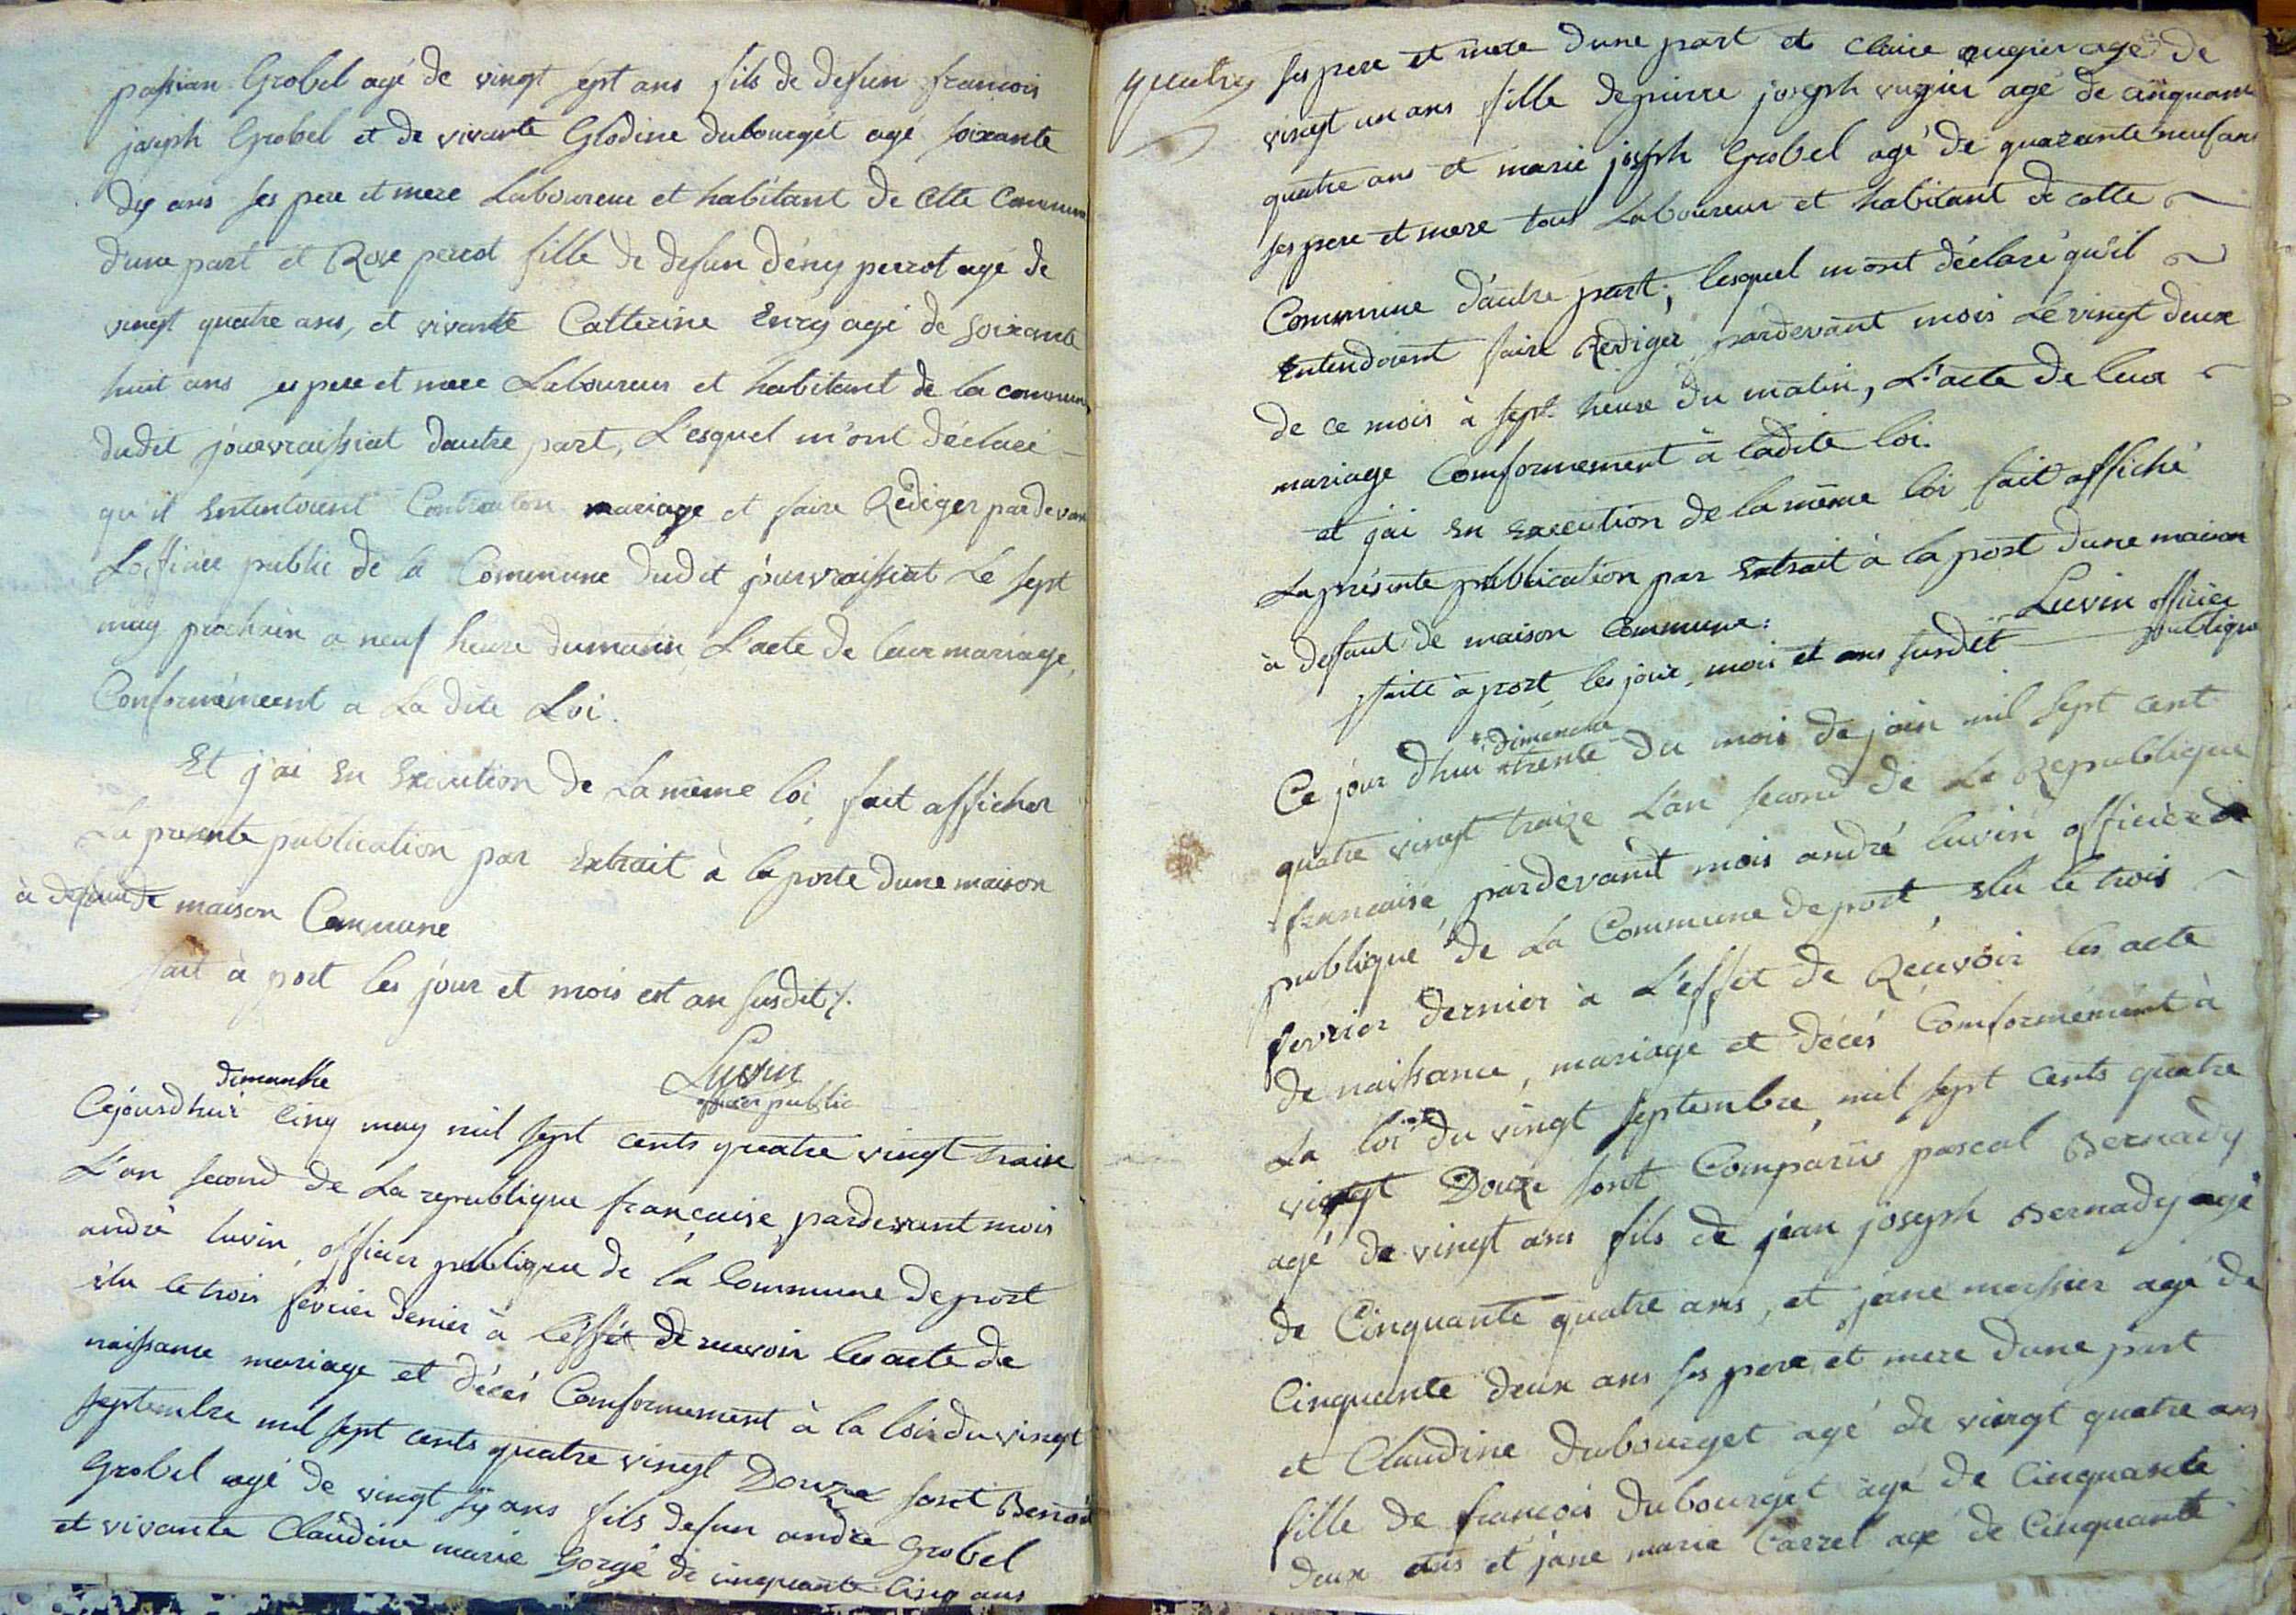 passian Grobel agé de vingt sept ans fils de defun francois
joseph Grobel et de vivante Glodine dubourget agé soixante
dix ans ses pere et mere Laboureur et habitant de cette Commune
d'une part et Rose perrot fille de defun dény perrot agé de
vingt quatre ans, et vivante Catterine Enrÿ agé de soixante
huit ans ses pere et mere Laboureur et habitant de la commune
dudit jourvraissiat dautre part, Lesquel m'ont déclaré
qu'il Entendoient mariage et faire Rédiger pardevant
Lofficier public de la Commune dudit jourvraissiat Le sept
may prochain a neuf heure du matin, L'acte de leur mariage,
Conformémeent a La dite Loi.
Et j'ai En Execution de La même loi, fait afficher
La presente publication par Extrait à la porte dune maison
à defaut de maison Commune
fait à port les jour et mois est an susdit %.
Luvin
officier public
dimanche
Cejourdhui cinq may mil sept cents quatre vingt traize
L'an second de La republique française pardevant mois
andré luvin, officier publique de la Commune de port
élu le trois février dernier à l'éffét de recevoir les acte de
naissance mariage et décés Comformement à la loix du vingt
septembre mil sept cents quatre vingt Douze sont Benoit
Grobel agé de vingt six ans fils defun andre Grobel
et vivante Claudine marie Gorgé de cinquante cinq ans
quatre
ses pere et mere d'une part et Claire vugier agé de
vingt un ans fille de pierre joseph vugier agé de cinquante
quatre ans et marie joseph Grobel agé de quarante neuf ans
ses pere et mere tous Laboureur et habitant de cette
Commune d'autre part; lesquel mont déclaré qu'il
Entendoient faire Rediger pardevant mois Le vingt deux
de ce mois à sept heure du matin, L'acte de leur
mariage Comformement à ladite loi.
et j'ai En Execution de la même loi fait affiché
La présente publication par Extrait à la port dune maison
à defaut de maison Commune:
faite à port, les jour, mois et ans susdit
Luvin officier
publique
dimanche
Ce jour d'hui trente du mois de join mil sept cent
quatre vingt traize L'an second de La Republique
francaise, pardevant mois andré luvin officier de
publique de La Commune de port élu le trois
fevrier dernier à L'effet de Reçevoir les acte
de naissance, mariage et décés Comformément à
La loi du vingt septembre mil sept cents quatre
vingt Douze sont Comparus pascal Bernady
agé de vingt ans fils de jean joseph Bernady agé
de Cinquante quatre ans, et jane messier agé de
Cinquante deux ans ses pere et mere dune part
et Claudine Dubourget agé de vingt quatre ans
fille de francois Dubourget agé de Cinquante
deux ans et jane marie Carrel agé de Cinquante